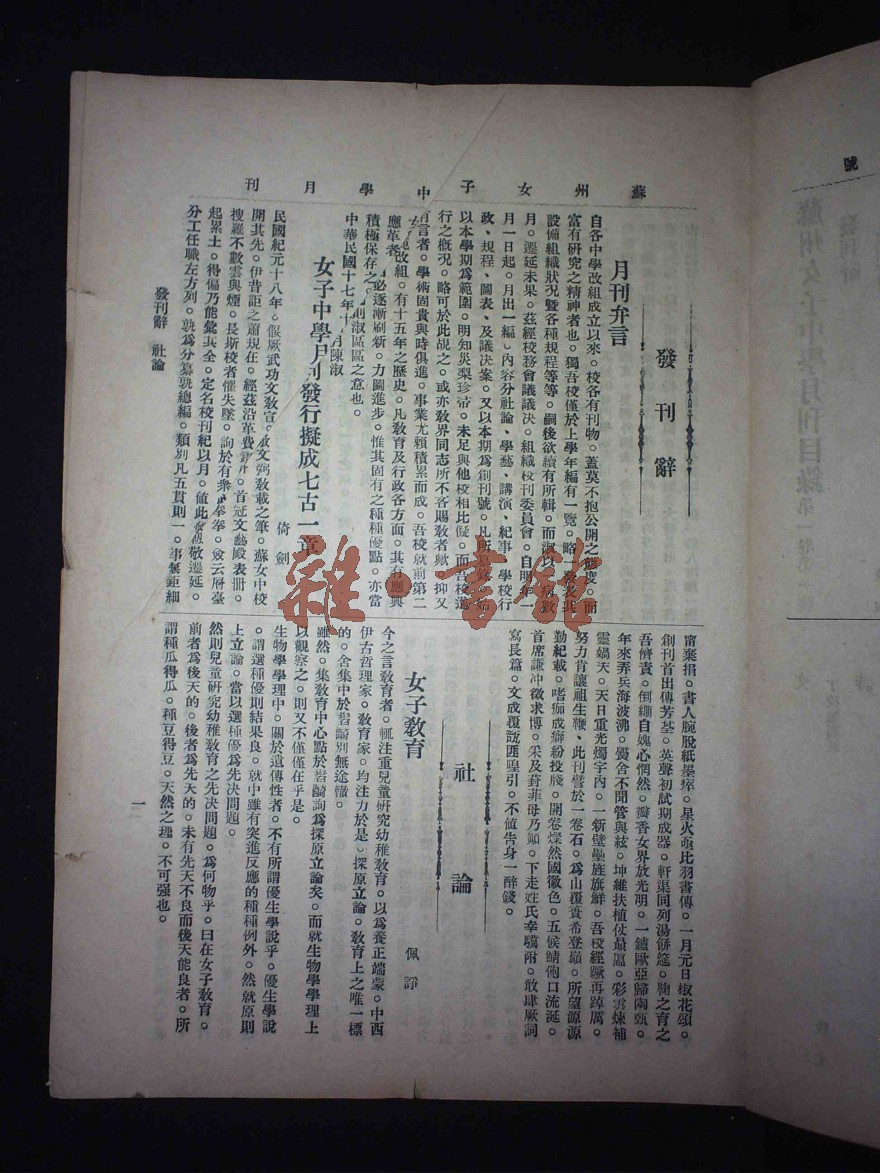 蘇州女子中學月刊
發刊辭
月刊弁言
自各中學改組成立以來。校各有刊物。蓋莫不抱公開之態度。而
富有研究之精神者也。獨吾校僅於上學年編有一覽。略
設備組織狀况暨各種規程等等。嗣後欲續有所輯。而淑以
月。遷延未果。茲經校務會議議决。組織校刊委員會。自明年一
月一日起。月出一編。內容分社論、學藝、講演、紀事、學校行
政、規程、圖表、及議决案。又以本期爲創刊號。凡所
以本學期爲範圍。明知災梨珍帚。未足與他校相比儗。而吾校進
行之概况。略可於此覘之。或亦敎界同志所不吝賜敎者歟。抑又
有言者。學術固貴與時俱進。事業尤賴積累而成。吾校就前第二
女 改組。有十五年之歷史。凡敎育及行政各方面。其有應興
應革者。 必逐漸刷新。力圖進步。惟其固有之種種優點。亦當
積極保存之。 則淑區區之意也。
中華民國十七年十 月陳淑
女子中學月刊發行擬成七古一章
倚劍
民國紀元十八年。偃厥武功文敎宣。 文弼敎載之筆。蘇女中校
開其先。伊昔詎之蕭規在。經茲沿革費 。首冠文藝殿表冊。
搜羅不數雲與煙。長斯校者懼失墜。詢於有衆 拳拳。僉云層臺
起累土。得偏乃能彙其全。定名校刊紀以月。値此 敬遷延。
分工任職左方列。孰爲分纂孰總編。類別凡五貫則一。事無鉅細
甯棄捐。書人腕脫紙墨瘁。星火亟比羽書傳。一月元日椒花頌。
創刊首出傳芳荃。英聲初試期成器。軒渠同列湯餅筵。鞠之育之
吾儕責。倒繃自媿心惘然。瓣香女界放光明。一鑪歐亞歸陶甄。
年來弄兵海波沸。黌舍不聞管與絃。坤維扶植仗最 。彩雲煉補
靈媧天。天日重光燭宇內。一新壁壘旌旗鮮。吾校經蹶再踔厲。
努力肯讓祖生鞭、此刊譬於一卷石。爲山覆簣希登巔。所望源源
勤紀載。嗜痂成癖紛投牋。開卷燦然國徽色。五侯鯖飽口流涎。
首席謙冲徵求博。采及葑菲母乃顚。下走姓氏幸驥附。敢肆厥詞
寫長篇。文成覆瓿匪遑引。不値告身一醉錢。
社論
女子敎育
佩諍
今之言敎育者。輒注重兒童研究幼稚敎育。以爲養正端蒙。中西
伊古哲理家。敎育家。均注力於是。探原立論。敎育上之唯一標
的。舍集中於 齡別無途轍。
雖然。集敎育中心點於 齡詢爲探原立論矣。而就生物學學理上
以觀察之。則又不僅僅在乎是。
生物學學理中。關於遺傳性者。不有所謂優生學說乎。優生學說
。謂選種優則結果良。就中雖有突進反應的種種例外。然就原則
上立論。當以選種優爲先决問題。
然則兒童研究幼稚敎育之先决問題。爲何物乎。曰在女子敎育。
前者爲後天的。後者爲先天的。未有先天不良而後天能良者。所
謂種瓜得瓜。種豆得豆。天然之理。不可強也。
發刊辭 社論
一
雜·書館
號
蘇州女子中學月刊目錄
發刊辭